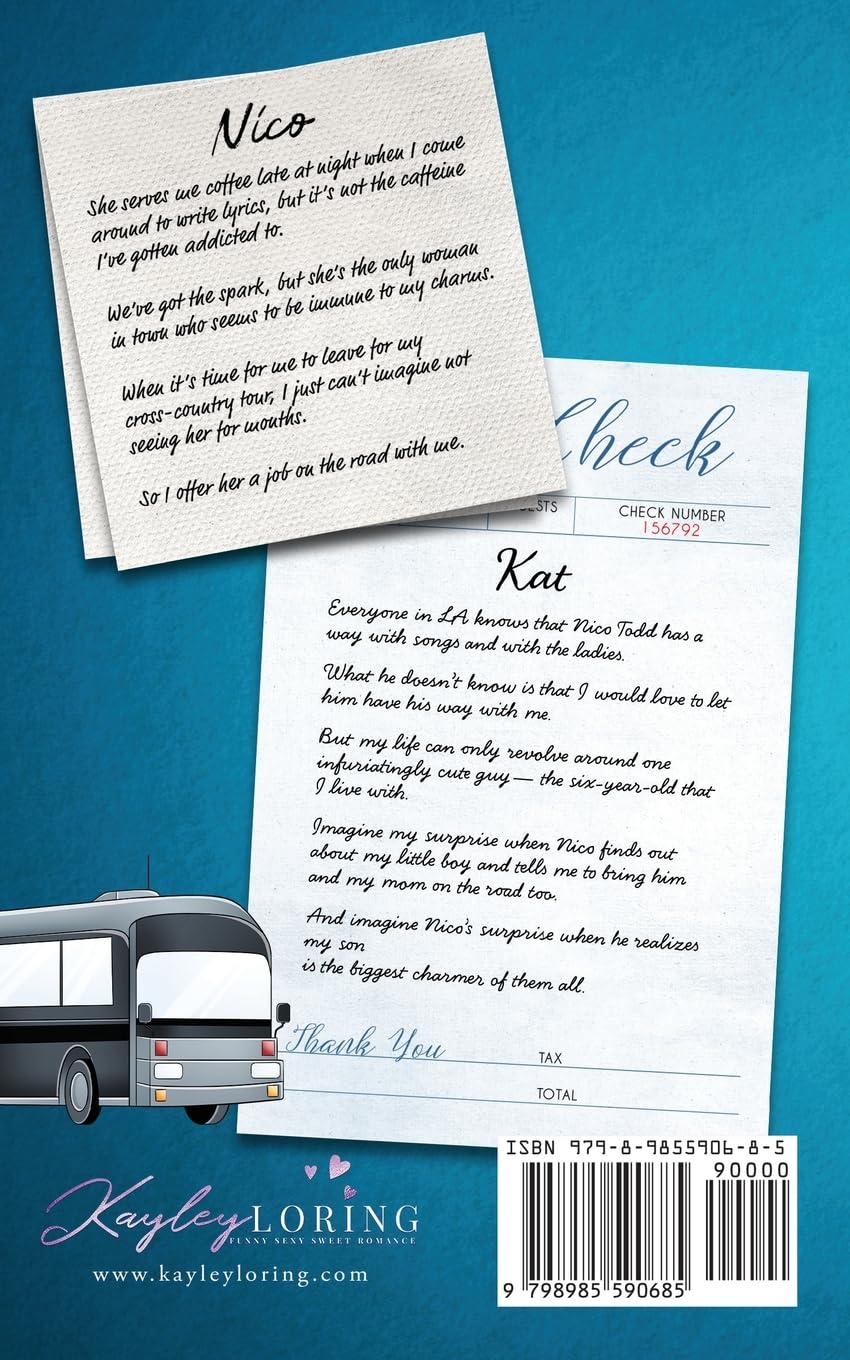 Nico
She serves me coffee late at night when I come
around to write lyrics, but it's not the caffeine
I've gotten addicted to.
We've got the spark, but she's the only woman
in town who seems to be immune to my charms.
When it's time for me to leave for my
cross-country tour, I just can't imagine not
seeing her for months.
So I offer her a job on the road with me.
Check
ESTS
CHECK NUMBER
156792
Kat
Everyone in LA knows that Nico Todd has a
way with songs and with the ladies.
What he doesn't know is that I would love to let
him have his way with me.
But my life can only revolve around one
infuriatingly cute guy — the six-year-old that
I live with.
Imagine my surprise when Nico finds out
about my little boy and tells me to bring him
and my mom on the road too.
And imagine Nico's surprise when he realizes
my son
is the biggest charmer of them all.
Thank You
TAX
TOTAL
Kayley LORING
FUNNY SEXY SWEET ROMANCE
www.kayleyloring.com
ISBN 979-8-9855906-8-5
90000
9 798985 590685